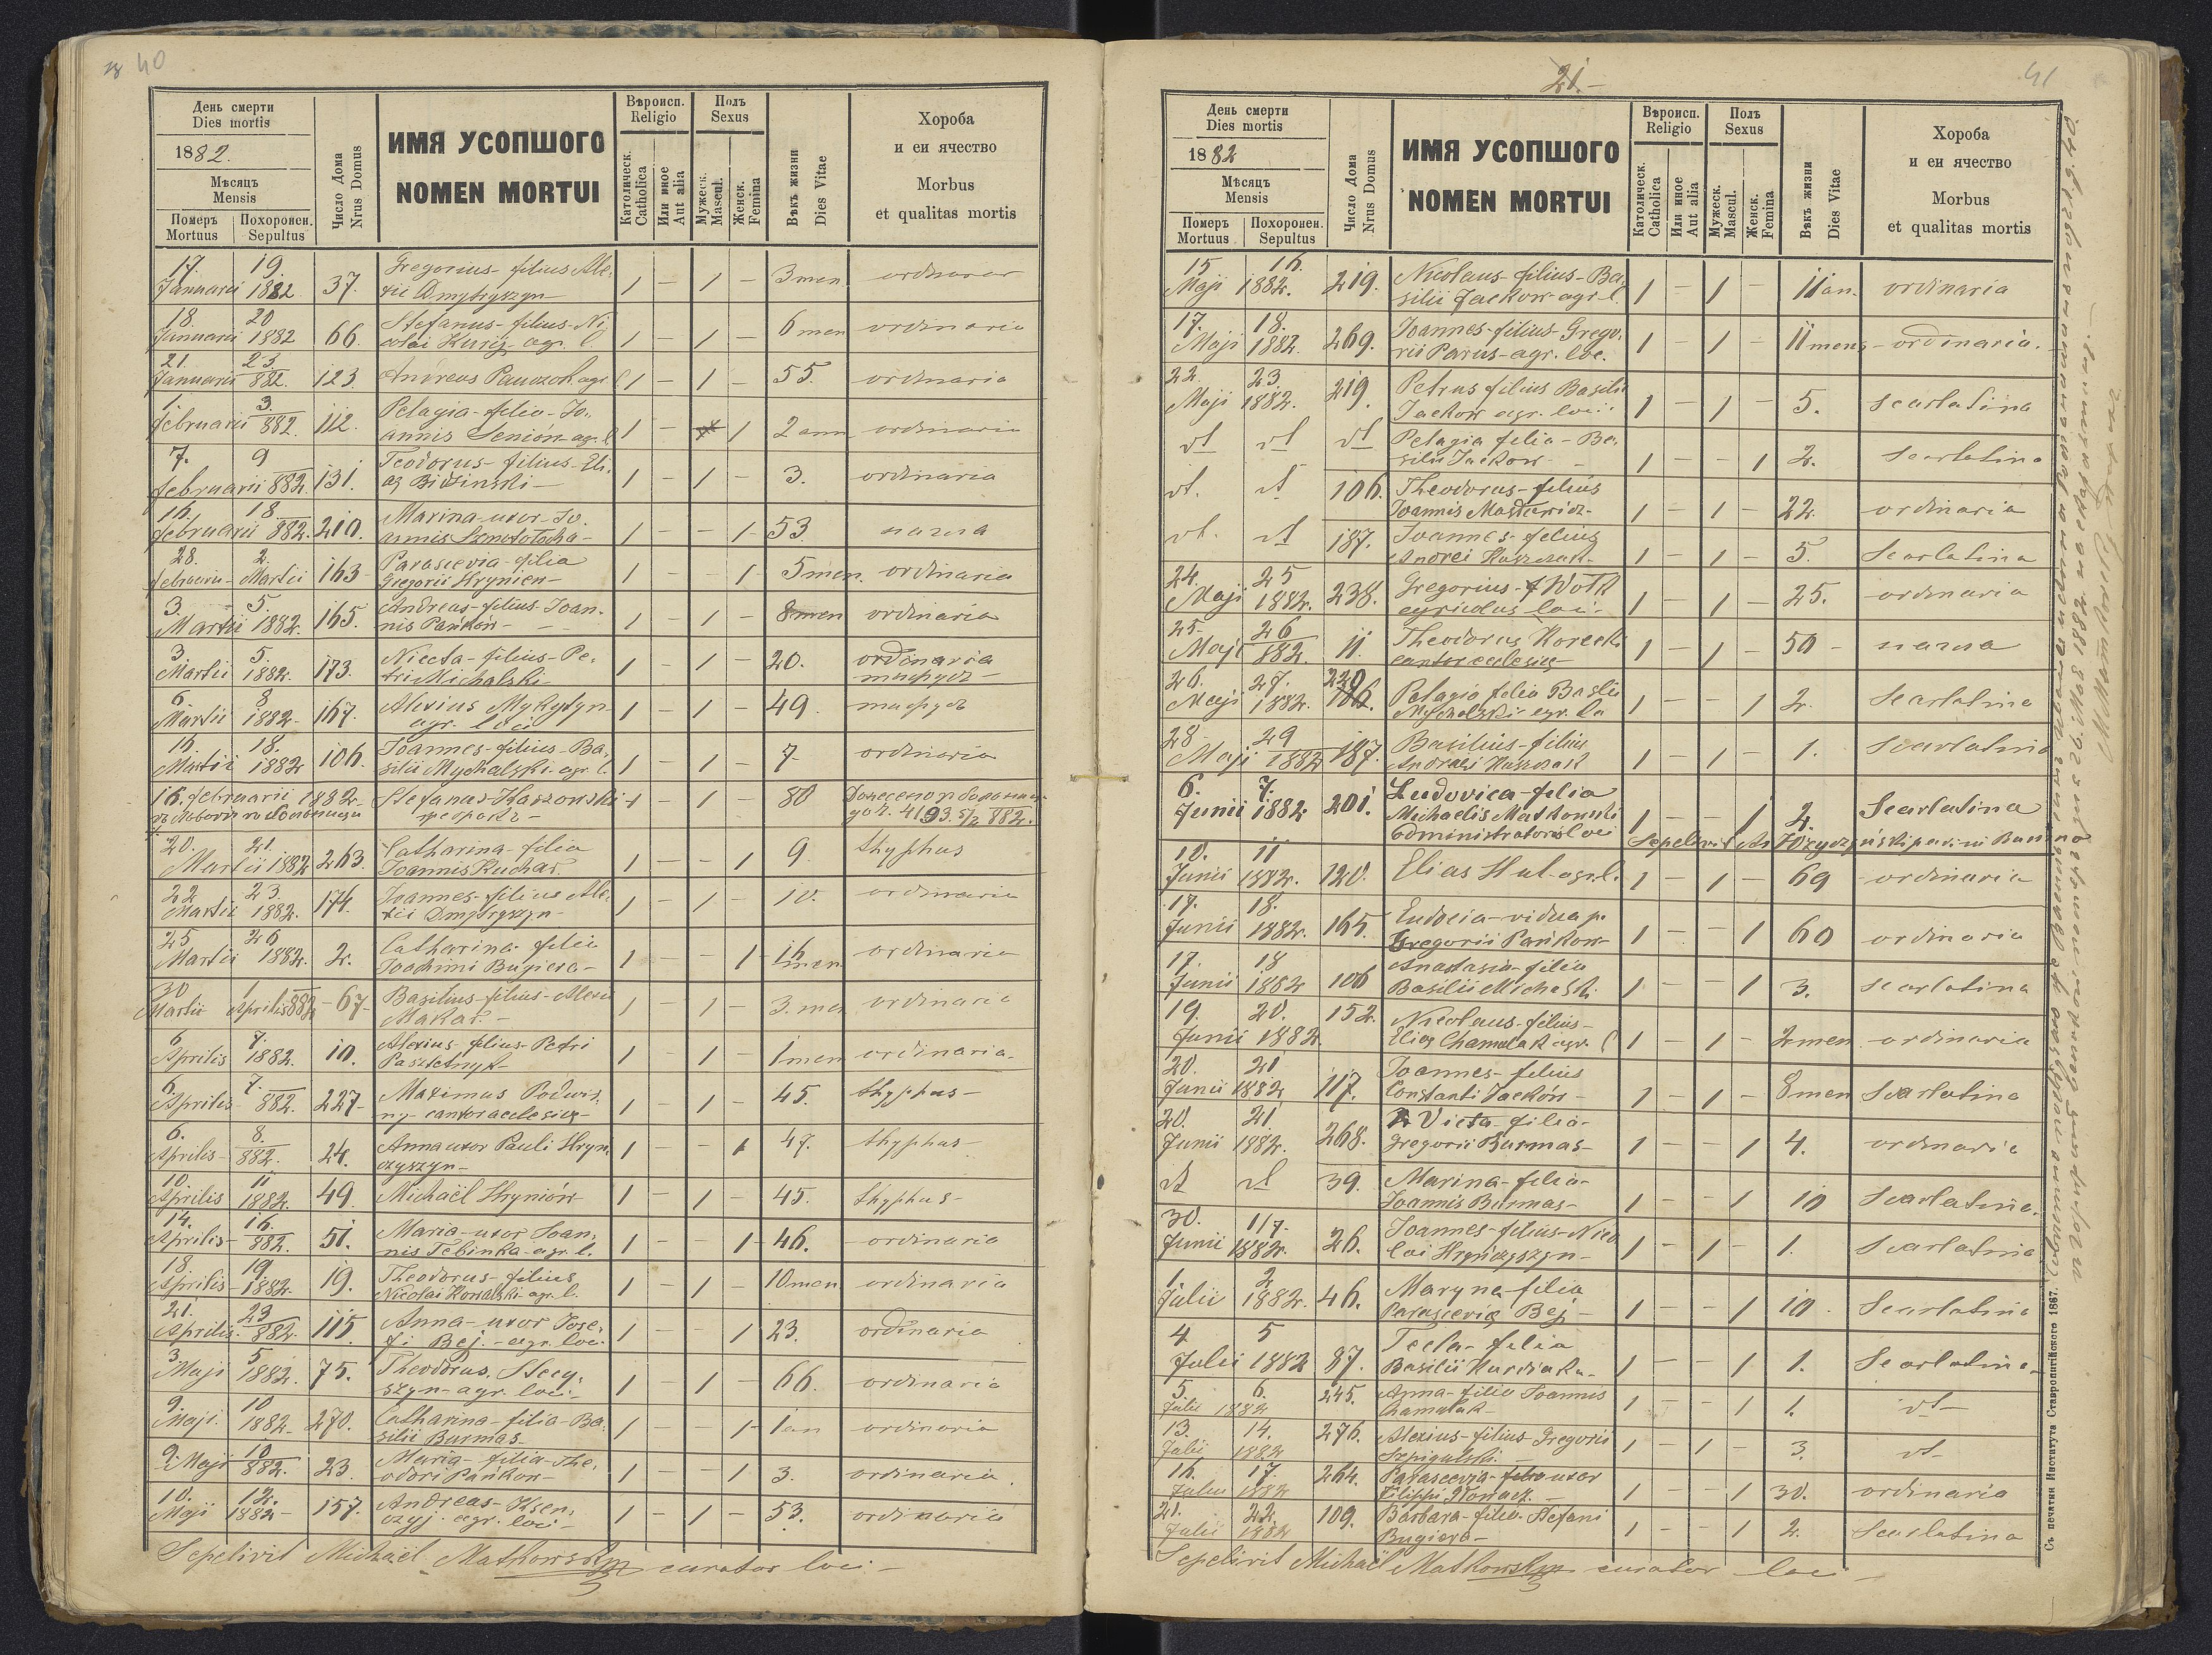 40
День смерти
Dies mortis
1882.
Мѣсяцъ
Mensis
Померъ Похоронен.
Mortuus Sepultus
Число Дома
Nrus Domus
ИМЯ УСОПШОГО
NOMEN MORTUI
Вѣроисп.
Religio
Католическ.
Catholica
Или иное
Aut alia
Полъ
Sexus
Мужеск.
Mascul.
Женск.
Femina
Вѣкъ жизни
Dies Vitae
Хороба
и еи ячество
Morbus
et qualitas mortis
17. 19. Gregorius - filius Ale-
Januarii 1882 37. xii Dmytryszyn 1 - 1 - 3 men
18. 20 Stefanus - filius - Ni-
Januarii 1882 66. colai Kurij agr. l. 1 - 1 - 6 men ordinaria
21. 23.
Januarii 882. 123. Andreas agr. l. 1 - 1 - 55. ordinaria
1. 3. Pelagia - filia - Jo-
februarii 882. 112. annis Seniów agr. l. 1 - 1 2 ann ordinaria
7. 9 Teodorus - filius - Eli-
februarii 882. 131. ae Bidinski - 1 - 1 - 3. ordinaria
16. 18. Marina - uxor - Jo-
februarii 882. 210. annis 1 - - 1 53
28. 2. Parascevia - filia
februarii - Martii 163 Gregorii Hrynien - 1 - - 1 5 men. ordinaria
3. 5. Andreas - filius - Joan-
Martii 1882. 165. nis Pańkón - 1 - 1 - 8 men ordinaria
3 5. Niceta - filius - Pe- ordinaria
Martii 1882. 173. tri Michalski 1 - 1 - 20. тифусъ -
6 8 Alexius Mykytyn
Martii 1882 - 167. agr. loci 1 - 1 - 49. тифусъ
16. 18. Joannes - filius - Ba-
Martii 1882 106. silii Mychalski agr. l. 1 - 1 - 7 ordinaria
16. februarii 1882 Stefanus Kaszowski 1 - 1 - 80
4193. 5/2 882.
20. 21. Catharina - filia
Martii 1882 263. Joannis Kuchar. 1 - - 1 9. thyphus
22 23. Joannes - filius Ale-
Martii 1882. 174. xii Dmytryszyn - 1 - 1 - 10. ordinaria
25 26 Catharina filia
Martii 1882. 2. Joachimi Bugiera - 1 - - 1 16 men ordinaria
30 1 Basilius - filius - Alexii
Martii Aprilis 882 - 67 - Makar. - 1 - 1 - 3. men ordinaria
6 7. Alexius - filius - Petri
Aprilis 1882. 10. 1 - 1 - 1 men ordinaria -
6. 7. Maximus Podwis-
Aprilis - 882. 227 - ny - cantor ecclesiæ - 1 - 1 - 45. thyphus -
6. 8. Anna uxor Pauli Hryn-
Aprilis - 882. 24. czyszyn - 1 - - 1 47. thyphus -
10. 11
Aprilis 1882. 49. Michaël Hryniów 1 - 1 - 45. thyphus -
14. 16. Maria - uxor Joan-
Aprilis - 882. 51. nis Tebinka - agr. l. 1 - - 1 - 46. - ordinaria
18. 19 Theodorus - filius
Aprilis - 1882. 19. Nicolai Kowalski - agr. l. 1 - 1 - 10 men ordinaria
21. 23 Anna - uxor Jose-
Aprilis. 882. 115. fi Bej. - agr. loci 1 - - 1 23. ordinaria
3. 5 Theodorus.
Maji 1882. 75. szyn - agr. loci - 1 - 1 - 66. ordinaria
9. 10 Catharina - filia - Ba-
Maji. 1882 - 270. silii Burmas - 1 - - 1 - 1 an ordinaria
9. 10 Maria - filia - The-
Maji 882. 23 odori Pańkow - 1 - - 1 3. ordinaria
10. 12. Andreas - Ksen-
Maji 1882 - 157. czyj - agr. loci - 1 - 1 - 53. ordinaria
Sepelivit Michaël Matkowskyj curator loci -
21. -
41
День смерти
Dies mortis
1882
Мѣсяцъ
Mensis
Померъ Похоронен.
Mortuus Sepultus
Число Дома
Nrus Domus
ИМЯ УСОПШОГО
NOMEN MORTUI
Вѣроисп.
Religio
Католическ.
Catholica
Или иное
Aut alia
Полъ
Sexus
Мужеск.
Mascul.
Женск.
Femina
Вѣкъ жизни
Dies Vitae
Хороба
и еи ячество
Morbus
et qualitas mortis
15 16. Nicolaus - filius - Ba-
Maji 1882. 219. silii Jackow - agr. l. 1 - 1 - 11 an. ordinaria
17. 18. Joannes - filius - Grego-
Maji 1882. 269. rii Parus - agr. loc. 1 - 1 - 11 mens - ordinaria. -
22. 23. Petrus filius Basilii
Maji 1882. 219. Jackow agr. loci 1 - 1 - 5. scarlatina
dt dt dt Pelagia filia - Ba-
silii Jackow - 1 - - 1 2. Scarlatina
dt. dt 106. Theodorus - filius
Joannis 1 - 1 - 22. ordinaria
dt. dt 187. Joannes - filius
Andrei 1 - 1 - 5. Scarlatina
24. 25 Gregorius - Wolk
Maji 1882. 238. agricolus loci - 1 - 1 - 25. ordinaria
25 - 26 Theodorus Korecki
Maji 882. 11. cantor ecclesiæ 1 - 1 - 50 -
26. 27. 220 Pelagia filia Basilii
Maji 1882. 106. Mychalski - agr. lo 1 - - 1 2. Scarlatina
28 29 Basilius - filius
Maji 1882 187. Andreæ 1 - 1 - 1. Scarlatina
6. 7. Ludovica - filia
Junii 1882 201. Michaelis Matkowski 1 - - 1 2. Scarlatina
administratoris loci Sepelivit
10. 11
Junii 1882. 120. Elias Hul - agr. l. 1 - 1 - 69 - ordinaria
17. 18. Eudocia - vidua p.
Junii 1882. 165. Gregorii Pańkow - 1 - - 1 60 ordinaria
17. 18 Anastasia - filia
Junii 1882 106 Basilii Michalski 1 - - 1 3. scarlatina
19. 20. 152. Nicolaus - filius -
Junii 1882. Eliæ Chamulak agr. l 1 - 1 - 2 men - ordinaria
20. 21 Joannes - filius
Junii 1882 117. Constanti Jackóv - 1 - 1 - 8 men Scarlatina
20. 21. Victa - filia -
Junii 1882. 268. Gregorii Burmas - 1 - - 1 4. ordinaria
dt dt 39. Marina - filia -
Joannis Burmas - 1 - - 1 10 Scarlatina.
30. 1/7. Joannes - filius - Nico
Junii 1882. 26. lai Hryńczyszyn - 1 - 1 - 1. Scarlatina
1. 2 Maryna - filia
Julii 1882. 46. Parasceviæ Bej - 1 - - 1 10 - Scarlatina
4 5 Tecla - filia
Julii 1882 87. Basilii Kurdiaka - 1 - - 1 1. Scarlatina -
5. 6. 245. Anna - filia Joannis
Julii 1882 Chamulak - 1 - - 1 1. dt -
13. 14. 276. Alexius - filius - Gregorii
Julii 1882 Szpigulski - 1 - 1 - 3. dt -
16. 17. 264. Parascevia - filia uxor
Julii 1882 Filippi 1 - - 1 30. ordinaria
21. 22. 109. Barbara - filia. Stefani
Julii 1882 Bugiera - 1 - - 1 2. Scarlatina
Sepelivit Michaël Matkowskyj curator loci -
Съ печатни Института Ставропигійского 1867.